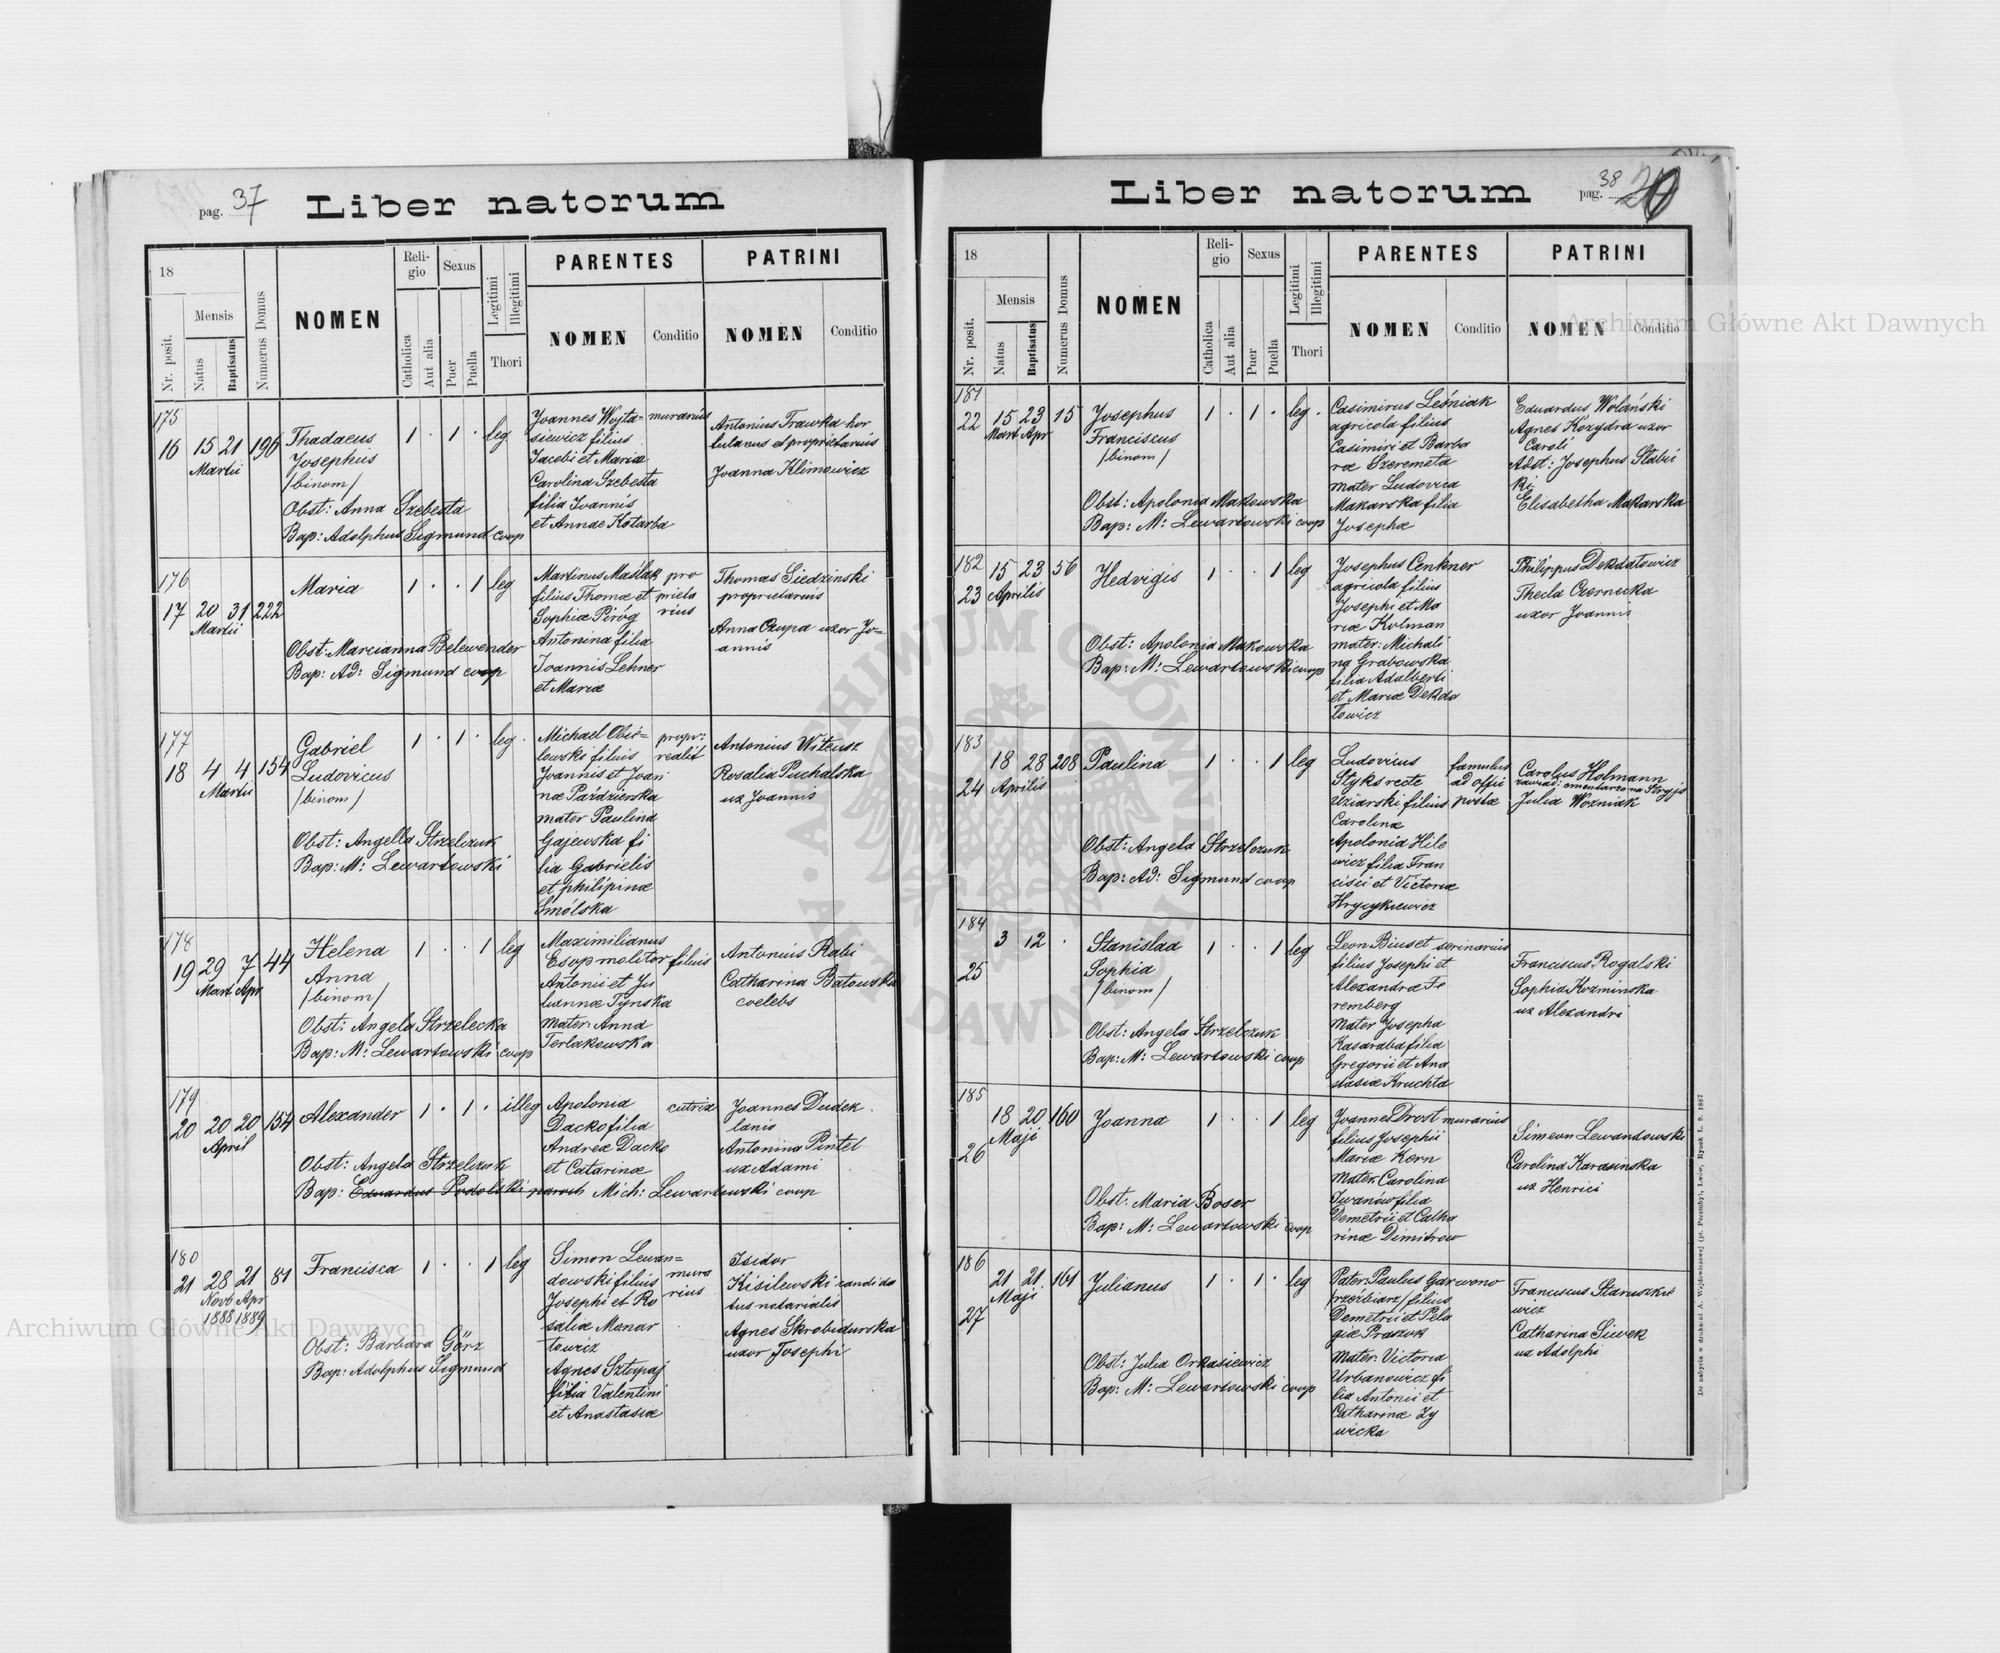 pag. 37
Liber natorum
18
Nr. posit.
Mensis
Natus
Baptisatus
Numerus Domus
NOMEN
Religio
Catholica
Aut alia
Sexus
Puer
Puella
Legitimi
Illegitimi
Thori
PARENTES
NOMEN
Conditio
PATRINI
NOMEN
Conditio
175
16 15 21 196
Martii
Thadaeus
Josephus
/binom/
Obst: Anna Szebesta
Bap: Adolphus Sigmund coop
1 . 1 . leg
Joannes Wojta= murarius
siewicz filius
Jacobi et Mariæ
Carolina Szebesta
filia Joannis
et Annae Kotarba
Antonius Trawka hor
tulanus et proprietarius
Joanna Klimowicz
176
17 20 31 222
Martii
Maria
Obst: Marcianna Belewender
Bap: Ad: Sigmund coop
1 . . 1 leg
Martinus Maślak pro
filius Thomæ et prieta
Sophiæ Piróg rius
Antonina filia
Joannis Lehner
et Mariæ
Thomas Siedzinski
proprietarius
Anna Czupa uxor Jo=
annis
177
18 4 4 154
Martii
Gabriel
Ludovicus
/binom/
Obst: Angella Strzelczuk
Bap: M: Lewartowski
1 . 1 . leg.
Michael Obie= propr:
lowski filius realit
Joannis et Joan
næ Paździerska
mater Paulina
Gajewska fi
lia Gabrielis
et philipinæ
Smólska
Antonius Witeusz
Rosalia Puchalska
ux Joannis
178
19 29 7 44
Mart Apr
Helena
Anna
/binom/
Obst: Angela Strzelecka
Bap: M: Lewartowski coop
1 . . 1 leg
Maximilianus
Esop molitor filius
Antonii et Ju
liannæ Tynska
Mater: Anna
Terlakowska
Antonius Rabi
Catharina Batowska
coelebs
179
20 20 20 154
April
Alexander
Obst: Angela Strzelczuk
Bap: Eduardus Podolski paroch Mich: Lewartowski coop
1 . 1 . illeg
Apolonia cutriæ
Dacko filia
Andreæ Dacko
et Catarinæ
Joannes Dudek
lanio
Antonina Pintel
ux Adami
180
21 28 21 81
Novb Apr
1888 1889
Francisca
Obst: Barbara Görz
Bap: Adolphus Sigmund
1 . . 1 leg
Simon Lewan=
dowski filius mura
Josephi et Ro rius
saliæ Manar
towicz
Agnes Sztupaj
filia Valentini
et Anastasiæ
Isidor
Kisilewski candida
tus notarialis
Agnes Skrobidurska
uxor Josephi
Liber natorum
pag. 38
18
Nr. posit.
Mensis
Natus
Baptisatus
Numerus Domus
NOMEN
Religio
Catholica
Aut alia
Sexus
Puer
Puella
Legitimi
Illegitimi
Thori
PARENTES
NOMEN
Conditio
PATRINI
NOMEN
Conditio
181
22 15 23 15
Mart Apr
Josephus
Franciscus
/binom/
Obst: Apolonia Makowska
Bap: M: Lewartowski coop
1 . 1 . leg.
Casimirus Leśniak
agricola filius
Casimiri et Barba
ræ Szeremeta
mater Ludovica
Makarska filia
Josephæ
Eduardus Wolański
Agnes Kozydra uxor
Caroli
Adst: Josephus Słabic
ki
Elisabetha Makarska
182
15 23 56
23 Aprilis
Hedvigis
Obst: Apolonia Makowska
Bap: M: Lewartowski coop
1 . . 1 leg
Josephus Cenkner
agricola filius
Josephi et Ma
riæ Kolman
mater: Michali
na Grabowska
filia Adalberti
et Mariæ Dekda
towicz
Philippus Dekdatowicz
Thecla Czernecka
uxor Joannis
183
18 28 208
24 Aprilis
Paulina
Obst: Angela Strzelczuk
Bap: Ad: Sigmund coop
1 . . 1 leg
Ludovicus famulus
Styks recte ad offici
Uziarski filius postæ
Carolinæ
Apolonia Hile
wicz filia Fran
cisci et Victoriæ
Hrycykiewicz
Carolus Holmann
zawiad: cmentarza na Stryjs
Julia Wozniak
184
3 12 .
25
Stanislaa
Sophia
/binom/
Obst: Angela Strzelczuk
Bap: M: Lewartowski coop
1 . . 1 leg
Leon Biuset serinarius
filius Josephi et
Alexandræ Fe
remberg
Mater Josepha
Kasaraba filia
Gregorii et Ana
stasiæ Kruchta
Franciscus Rogalski
Sophia Kozminska
ux Alexandri
185
18 20 160
Maji
26
Joanna
Obst: Maria Boser
Bap: M: Lewartowski coop
1 . . 1 leg
Joannes Drost murarius
filius Josephii
Mariæ Kern
Mater: Carolina
Iwanów filia
Demetrii et Catha
rinæ Dimitrow
Simeon Lewandowski
Carolina Karasinska
ux Henrici
186
21 21 161
Maji
27
Julianus
Obst: Julia Orkasiewicz
Bap: M: Lewartowski coop
1 . 1 . leg
Pater: Paulus Garwono
/rzeźbiarz/ filius
Demetrii et Pela
giæ Praszuk
Mater: Victoria
Urbanowicz fi
lia Antonii et
Catharinæ Zy
wicka
Franciscus Staruszkie
wicz
Catharina Siwek
ux Adolphi
Do nabycia w drukarni A. Wajdowiczowej (pl. Poremby), Lwów, Rynek L. 9. 1887
Archiwum Główne Akt Dawnych
Archiwum Główne Akt Dawnych